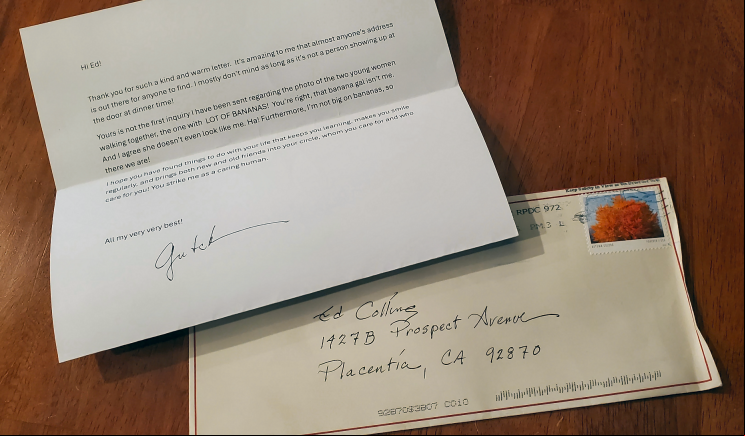 Hi Ed!
Thank you for such a kind and warm letter. It's amazing to me that almost anyone's address
is out there for anyone to find. I mostly don't mind as long as it's not a person showing up at
the door at dinner time!
Yours is not the first inquiry I have been sent regarding the photo of the two young women
walking together, the one with LOT OF BANANAS! You're right, that banana gal isn't me.
And I agree she doesn't even look like me. Ha! Furthermore, I'm not big on bananas, so
there we are!
I hope you have found things to do with your life that keeps you learning, makes you smile
regularly, and brings both new and old friends into your circle, whom you care for and who
care for you! You strike me as a caring human.
All my very very best!
Gutch
RPDC 972
Ed Collins
1427B Prospect Avenue
Placentia, CA 92870